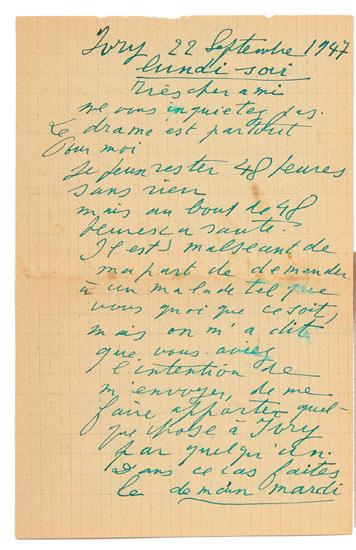 Ivry 22 Septembre 1947
lundi soir
Très cher ami
ne vous inquietez pas.
Le drame est partout
Pour moi
Je peux rester 48 heures
sans rien
mais au bout de 48
heures
Il est malseant de
ma part de demander
à un malade tel que
vous quoi que ce soit,
mais on m'a dit
que vous aviez
l'intention de
m'envoyer, de me
faire apporter quel-
que chose à Ivry
par quelqu'un.
Dans ce cas faites
le demain mardi